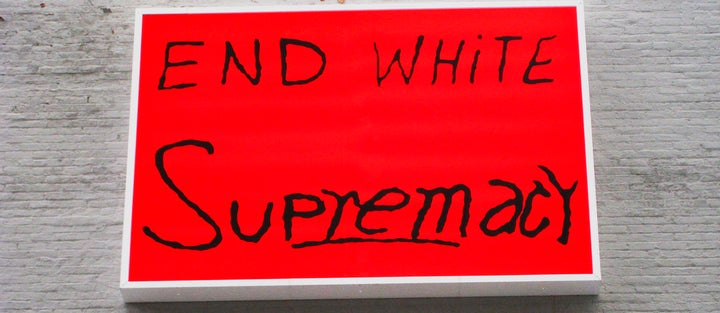 END WHiTE
SUPremacy